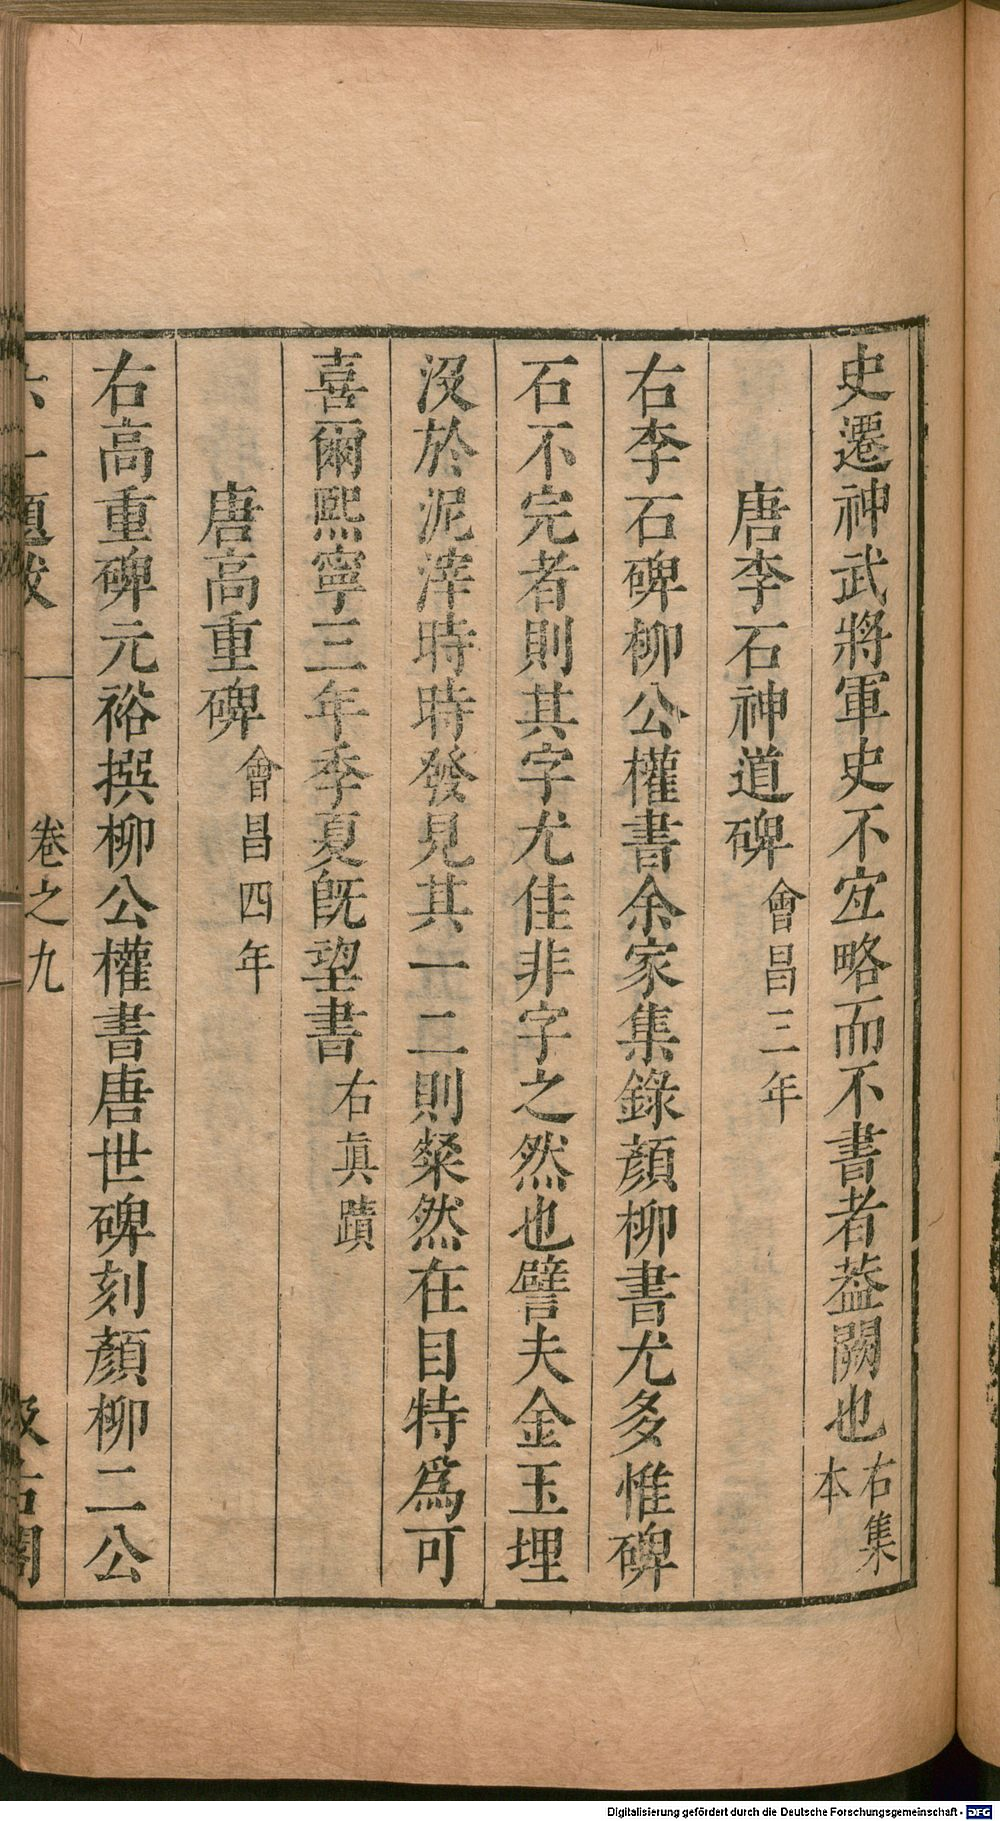 史遷神武將軍史不宜略而不書者葢闕也右集本
唐李石神道碑會昌三年
右李石碑柳公權書余家集錄顏柳書尤多惟碑
石不完者則其字尤佳非字之然也譬夫金玉埋
沒於泥滓時時發見其一二則粲然在目特爲可
喜爾熙寧三年季夏旣望書右眞蹟
唐高重碑會昌四年
右高重碑元裕撰柳公權書唐世碑刻顏柳二公
六一題跋 卷之九 汲古閣
Digitalisierung gefördert durch die Deutsche Forschungsgemeinschaft - DFG